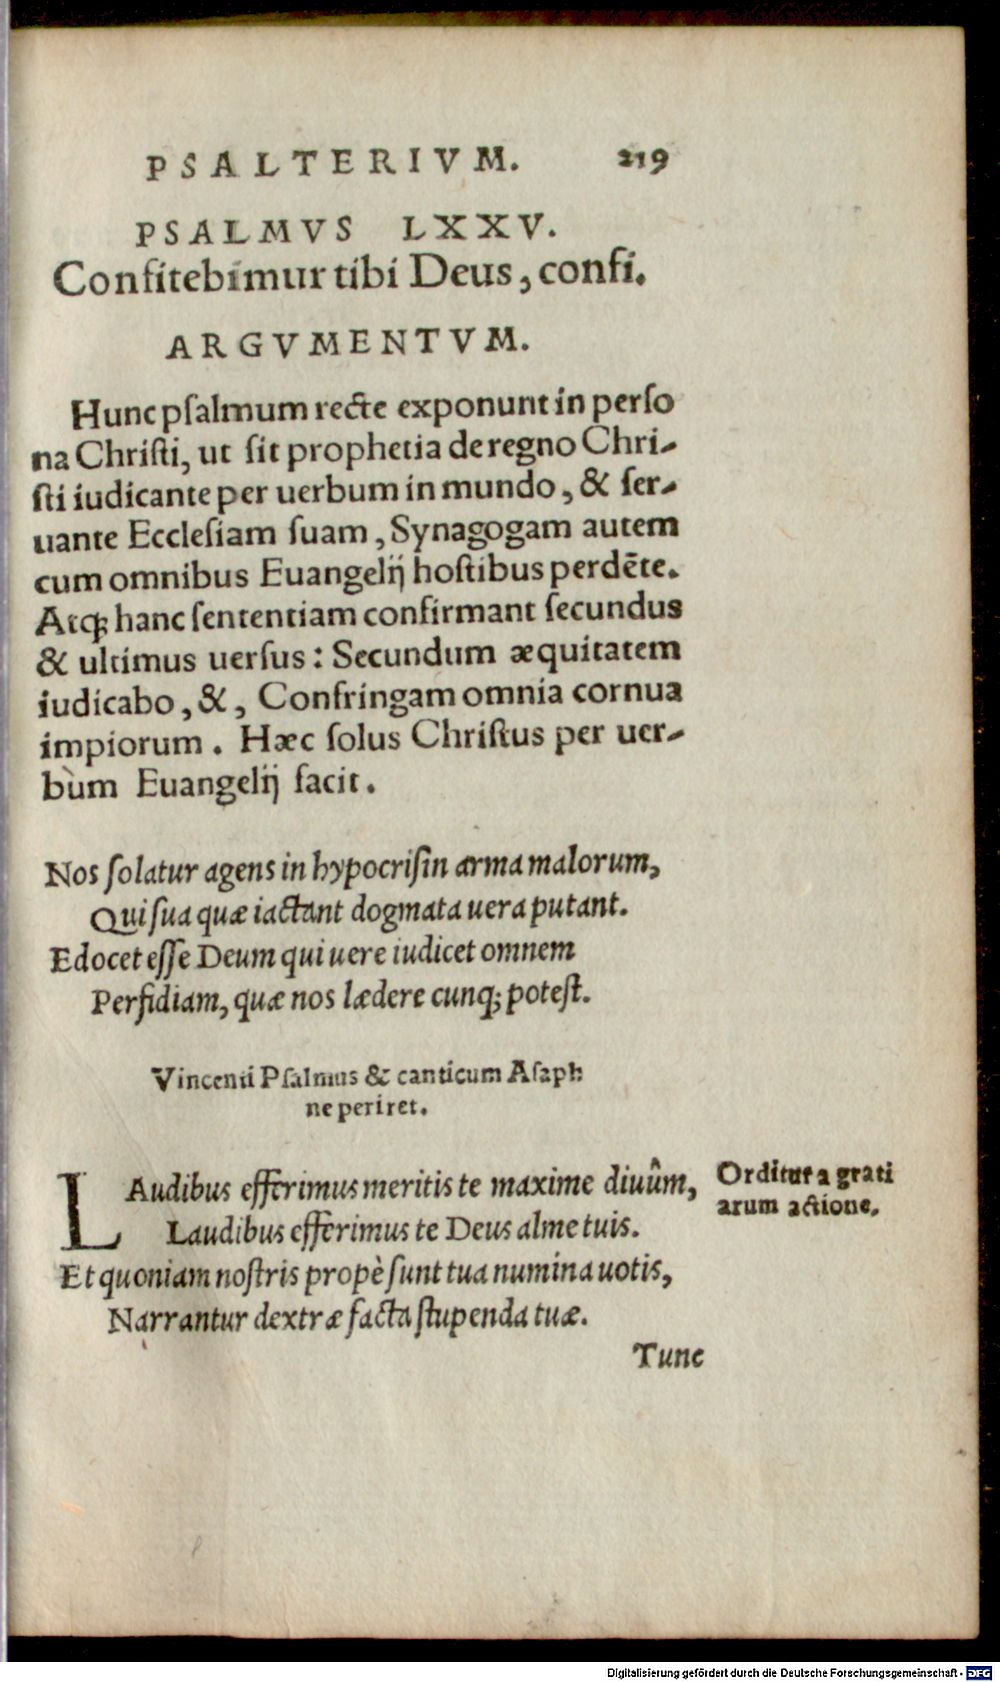 PSALTERIVM. 219
PSALMVS LXXV.
Confitebimur tibi Deus, confi.
ARGVMENTVM.
Hunc psalmum recte exponunt in perso
na Christi, ut sit prophetia de regno Chri-
sti iudicante per uerbum in mundo, & ser-
uante Ecclesiam suam, Synagogam autem
cum omnibus Euangelij hostibus perdēte.
Atq; hanc sententiam confirmant secundus
& ultimus uersus: Secundum æquitatem
iudicabo, &, Confringam omnia cornua
impiorum. Hæc solus Christus per uer-
bùm Euangelij facit.
Nos solatur agens in hypocrisin arma malorum,
Qui sua quæ iactant dogmata uera putant.
Edocet esse Deum qui uere iudicet omnem
Perfidiam, quæ nos lædere cunq; potest.
Vincenti Psalmus & canticum Asaph
ne periret.
LAudibus efferimus meritis te maxime diuûm,
Laudibus efferimus te Deus alme tuis.
Et quoniam nostris propè sunt tua numina uotis,
Narrantur dextræ facta stupenda tuæ.
Tunc
Orditur a grati
arum actione.
Digitalisierung gefördert durch die Deutsche Forschungsgemeinschaft - DFG